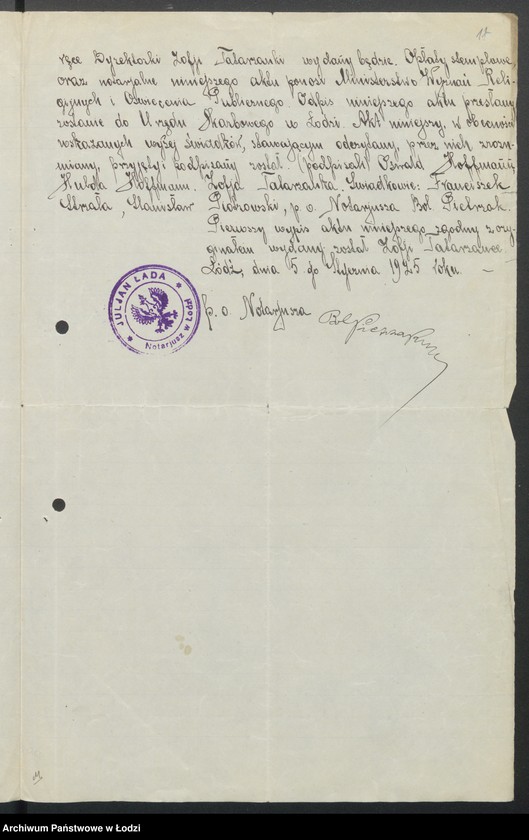 18
ręce Dyrektorki Zofji Tatarzanki wydany będzie. Opłaty stemplowe
oraz notarjalne niniejszego aktu ponosi Ministerstwo Wyznań Reli-
gijnych i Oświecenia Publicznego. Odpis niniejszego aktu przesłany
zostanie do Urzędu Skarbowego w Łodzi. Akt niniejszy, w obecności
wskazanych wyżej świadków, stawającym odczytany, przez nich zrozu-
miany, przyjęty i podpisany został. (podpisali) Oswald Hoffman,
Hoffmann. Zofja Tatarzanka. Świadkowie: Franciszek
Strała, Stanisław Piotrowski, p. o. Notarjusza Bol. Pietrzak.
Pierwszy wypis aktu niniejszego zgodny z ory-
ginałem wydany został Zofji Tatarzance
Łódź, dnia 5 go Stycznia 1925 roku. —
JULJAN ŁADA
Notarjusz w Łodzi
p. o Notarjusza
Archiwum Państwowe w Łodzi